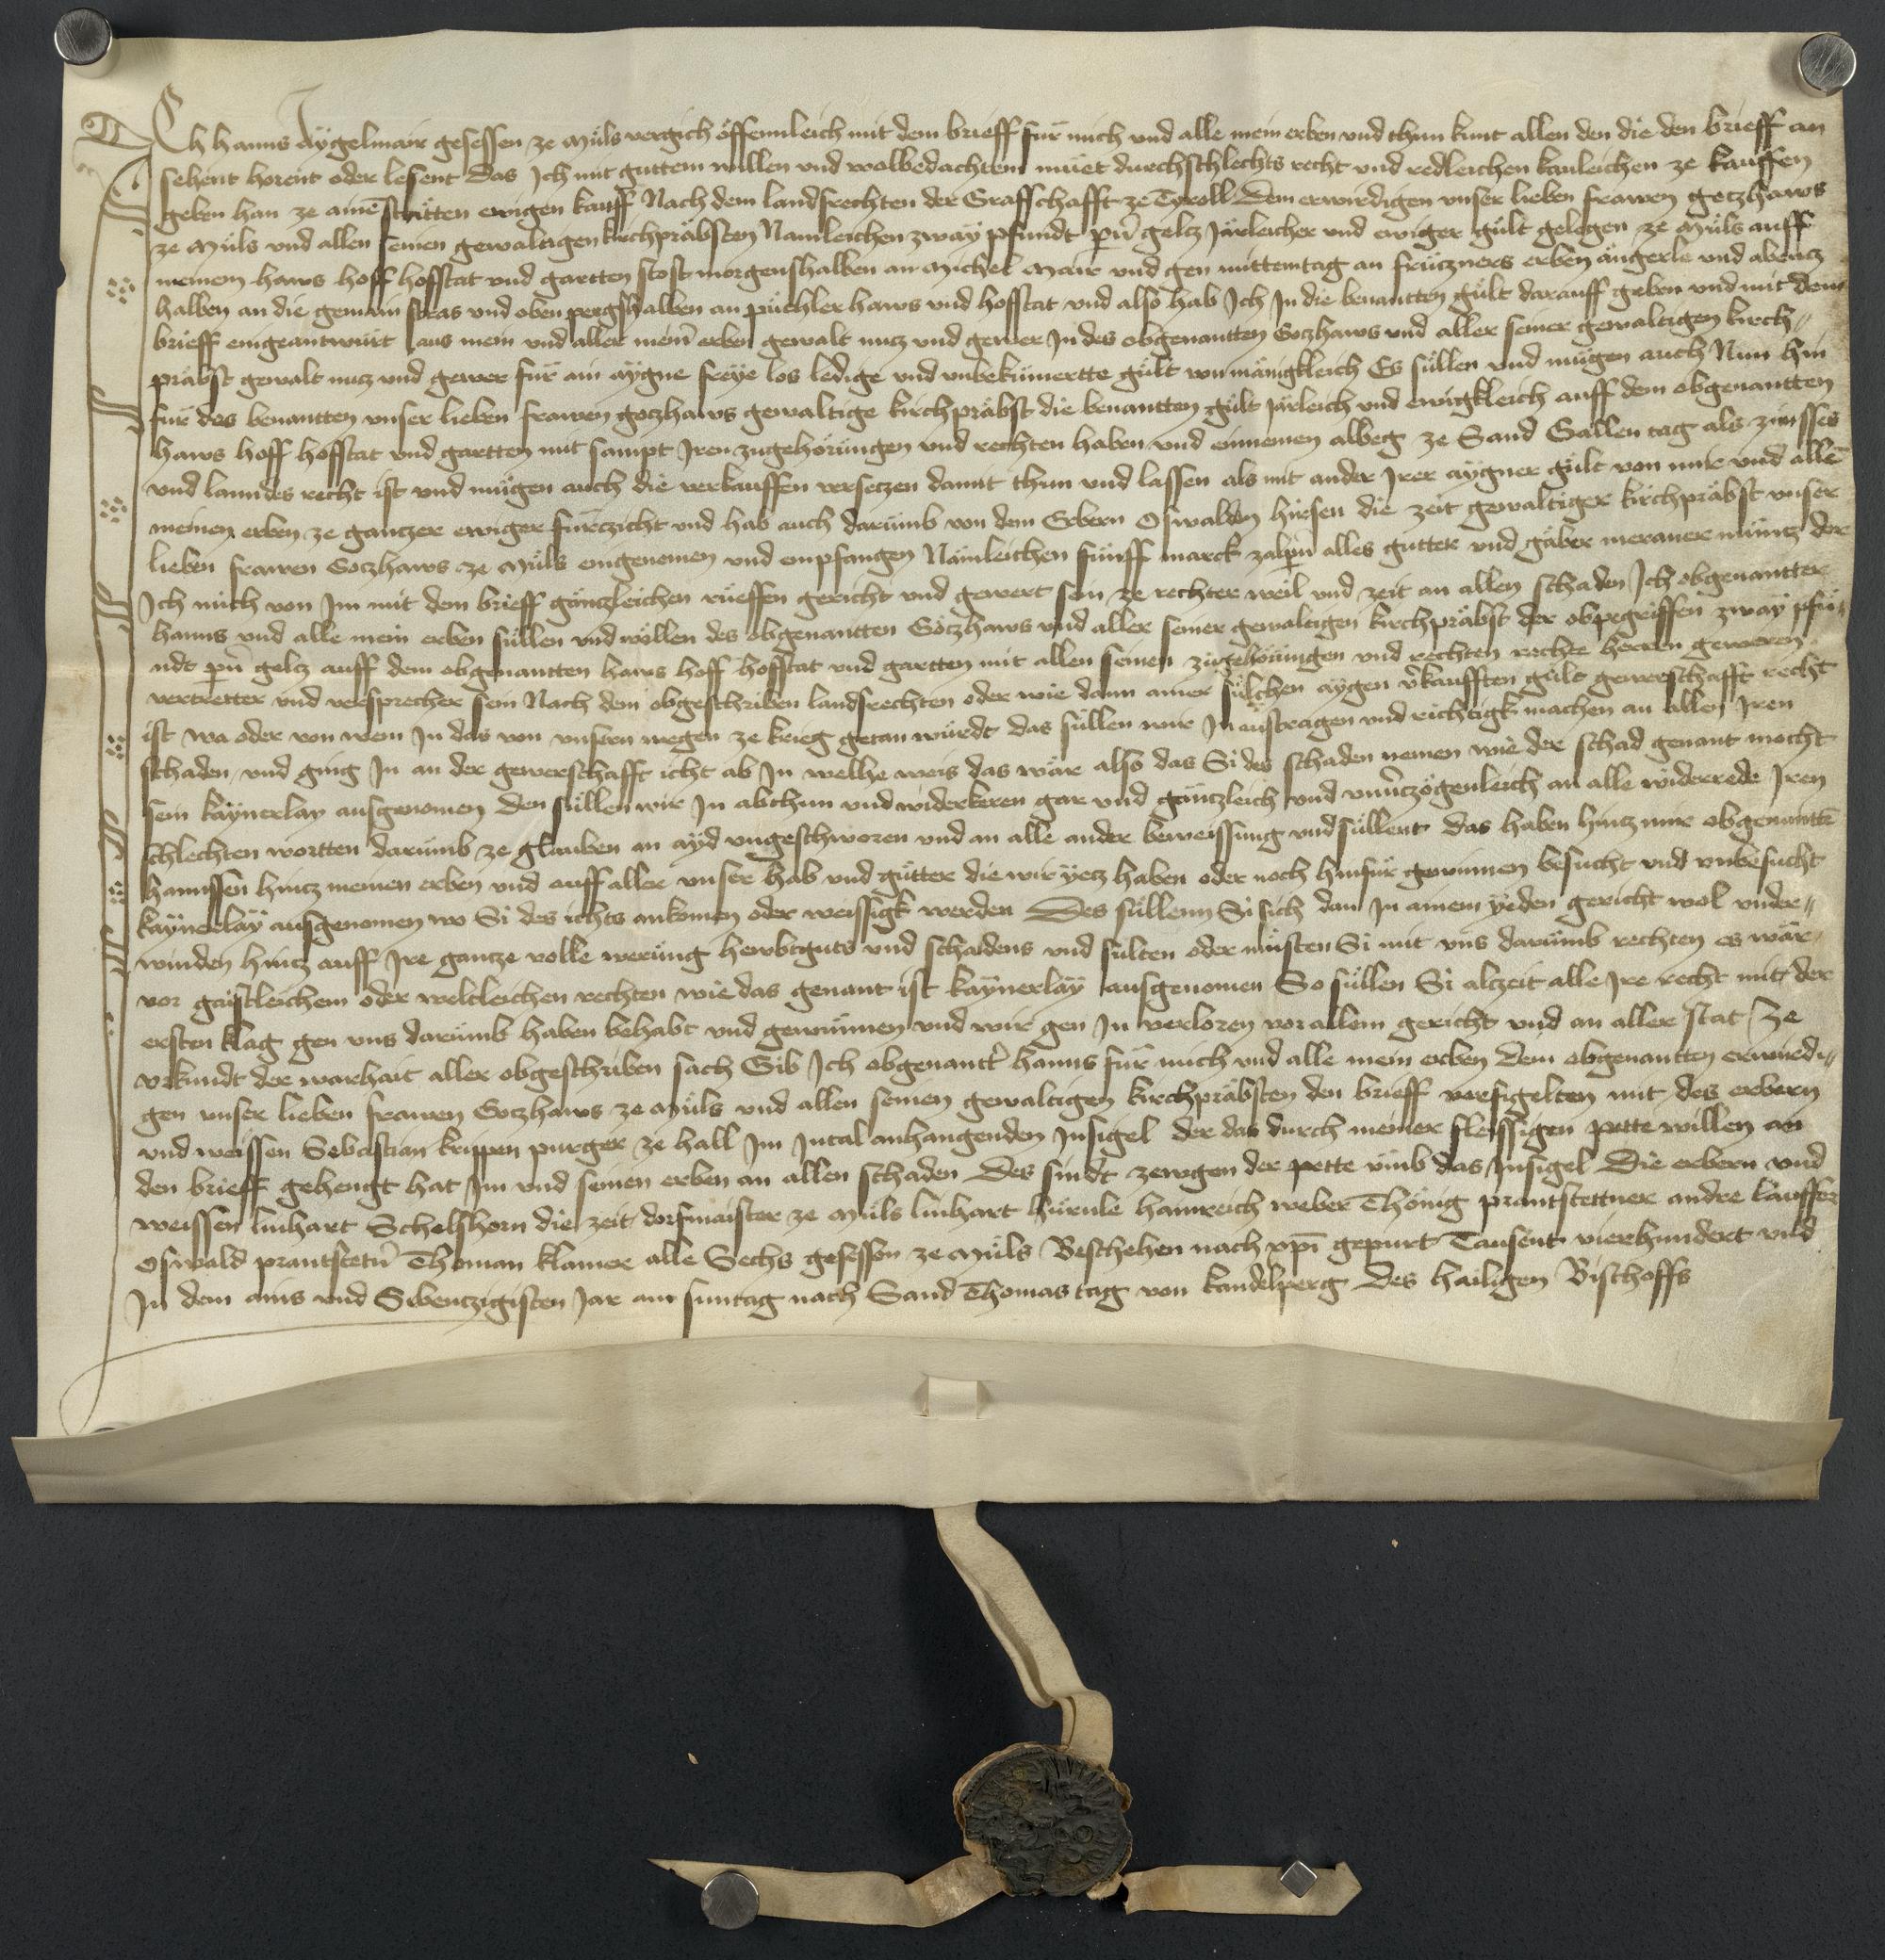 Ich hanns Aÿgelmair gesessen ze Müls vergich öffennleich mit dem brieff für mich und alle mein erben und thun kunt allen den die den brieff an
sehent horent oder lesent Das Ich mit guttem willen und wolbedachtem müet durchschlechts recht und redleichen kauleichen ze kauffen
geben han ze ainē stätten ewigen kauff Nach dem landsrechten der Graffschafft ze Tyroll Dem erwirdigen unser lieben frawen gotzhaws
ze Müls und allen seinen gewaltigen kirchpräbsten Namleichen zwaÿ pfundt pn̄ geltz Järleicher und ewiger gült gelegen ze Müls auff
meinem haws hoff hofstat und gartten stost morgenshalben an Michel Mair und gen mittemtag an früczners erben ängerle und abentz
halben an die gemain stras und oben pergshalben an püchler haws und hofstat und also hab Ich In die benantten gült darauff geben und mit dem
brieff eingeantwürt aus mein und aller mein̄ erben gewalt nucz und gewer In des obgenantten Gotzhaws und aller seiner gewaltigen kirch〃
präbst gewalt nucz und gewer für ain aÿgne freÿe los ledige und unbekümertte gült von mänigkleich Es süllen und mügen auch Nun hin
für des benantten unser lieben frawen gotzhaws gewaltige kirchpräbst die benantten gült järleich und ewigkleich auff dem obgenantten
haws hoff hofstat und gartten mit sampt Iren zugehörüngen und rechten haben und einnemen albeg ze Sand Gallen tag als zinsses
und lanndes recht ist und mügen auch die verkauffen versetzen damit thun und lassen als mit ander Irer aÿgner gült von mir und allē
meinen erben ze gantzer ewiger fürczicht und hab auch darümb von dem Erbern Oswalden hirsen die zeit gewaltiger kirchpräbst unser
lieben frawen Gotzhaws ze Müls eingenomen und empfangen Nämleichen fünff marck zalpn̄ alles gutter und gäber meraner müntz der
Ich mich von Im mit dem brieff gäntzleichen rüeffen gericht und gewert sein ze rechter weil und zeit an allen schaden Ich obgenantter
hanns und alle mein erben süllen und wöllen des obgenantten Gotzhaws und aller seiner gewaltigen kirchpräbst der obgegriffen zwaÿ pfu〃
ndt pn̄ geltz auff dem obgenantten haws hoff hofstat und gartten mit allen seinen zugehörüngen und rechten rechte herren geweren
vertretter und versprecher sein Nach dem obgeschriben landsrechten oder wie dann ainer sülchen aÿgen v̄kaufften gült gewerschafft recht
ist wa oder von wem In das von unsern wegen ze krieg getan würdt das süllen wir In austragen und richtigk machen an allen Iren
schaden und ging In an der gewerschafft icht ab In welhe weis das wär also das Si des schaden nemen wie der schad genant mocht
sein kaÿnerlay ausgenomen Den süllen wir In abthun und widerkeren gar und gäntzleich und unv̄tzögenleich an alle widerrede Iren
schlechten wortten darümb ze glauben an aÿd ungeschworen und an alle ander beweissung und süllent das haben hintz mir obgenantt
hannssen hintz meinen erben und auff aller unser hab und gütter die wir ÿetz haben oder noch hinfür gewinnen besucht und unbesucht
kaÿnerlaÿ ausgenomen wo Si des ichts ankomen oder weissigk werden Des süllenn Si sich dan In ainem ÿeden gericht wol under〃
winden hintz auff Ire gantze volle werüng hewbtguts und schadens und sülten oder müsten Si mit uns darümb rechten es wär
vor gaistleichem oder weltleichen rechten wie das genant ist kaÿnerlaÿ ausgenomen So süllen Si altzeit alle Ire recht mit der
ersten klag gen uns darümb haben behabt und gewünnen und wir gen In verloren vor allem gericht und an aller stat Ze
urkundt der warhait aller obgeschriben sach Gib Ich obgenantt̄ hanns für mich und alle mein erben Dem obgenantten erwirdi〃
gen unser lieben frawen Gotzhaws ze Müls und allen seinen gewaltigen kirchpräbsten den brieff versigelten mit des erbern
und weissen Sebastian krippen purger ze hall Im Intal anhangenden Insigel der das durch meiner fleissigen pette willen an
den brieff gehengt hat Im und seinen erben an allen schaden Des sindt zewgen der pette umb das Insigel Die erbern und
weissen linhart Schelshorn die zeit dorfmaister ze Müls linhart hürnle hainreich weber Thönig prantstettner andre lauffer
Oswald prantstetn̄ Thoman klamer alle Sechs gesessen ze Müls Beschehen nach xpī gepurt Tausent vierhundert und
In dem ains und Sibentzigisten Jar am suntag nach Sand Thomas tag von kandelperg Des hailigen Bischoffs